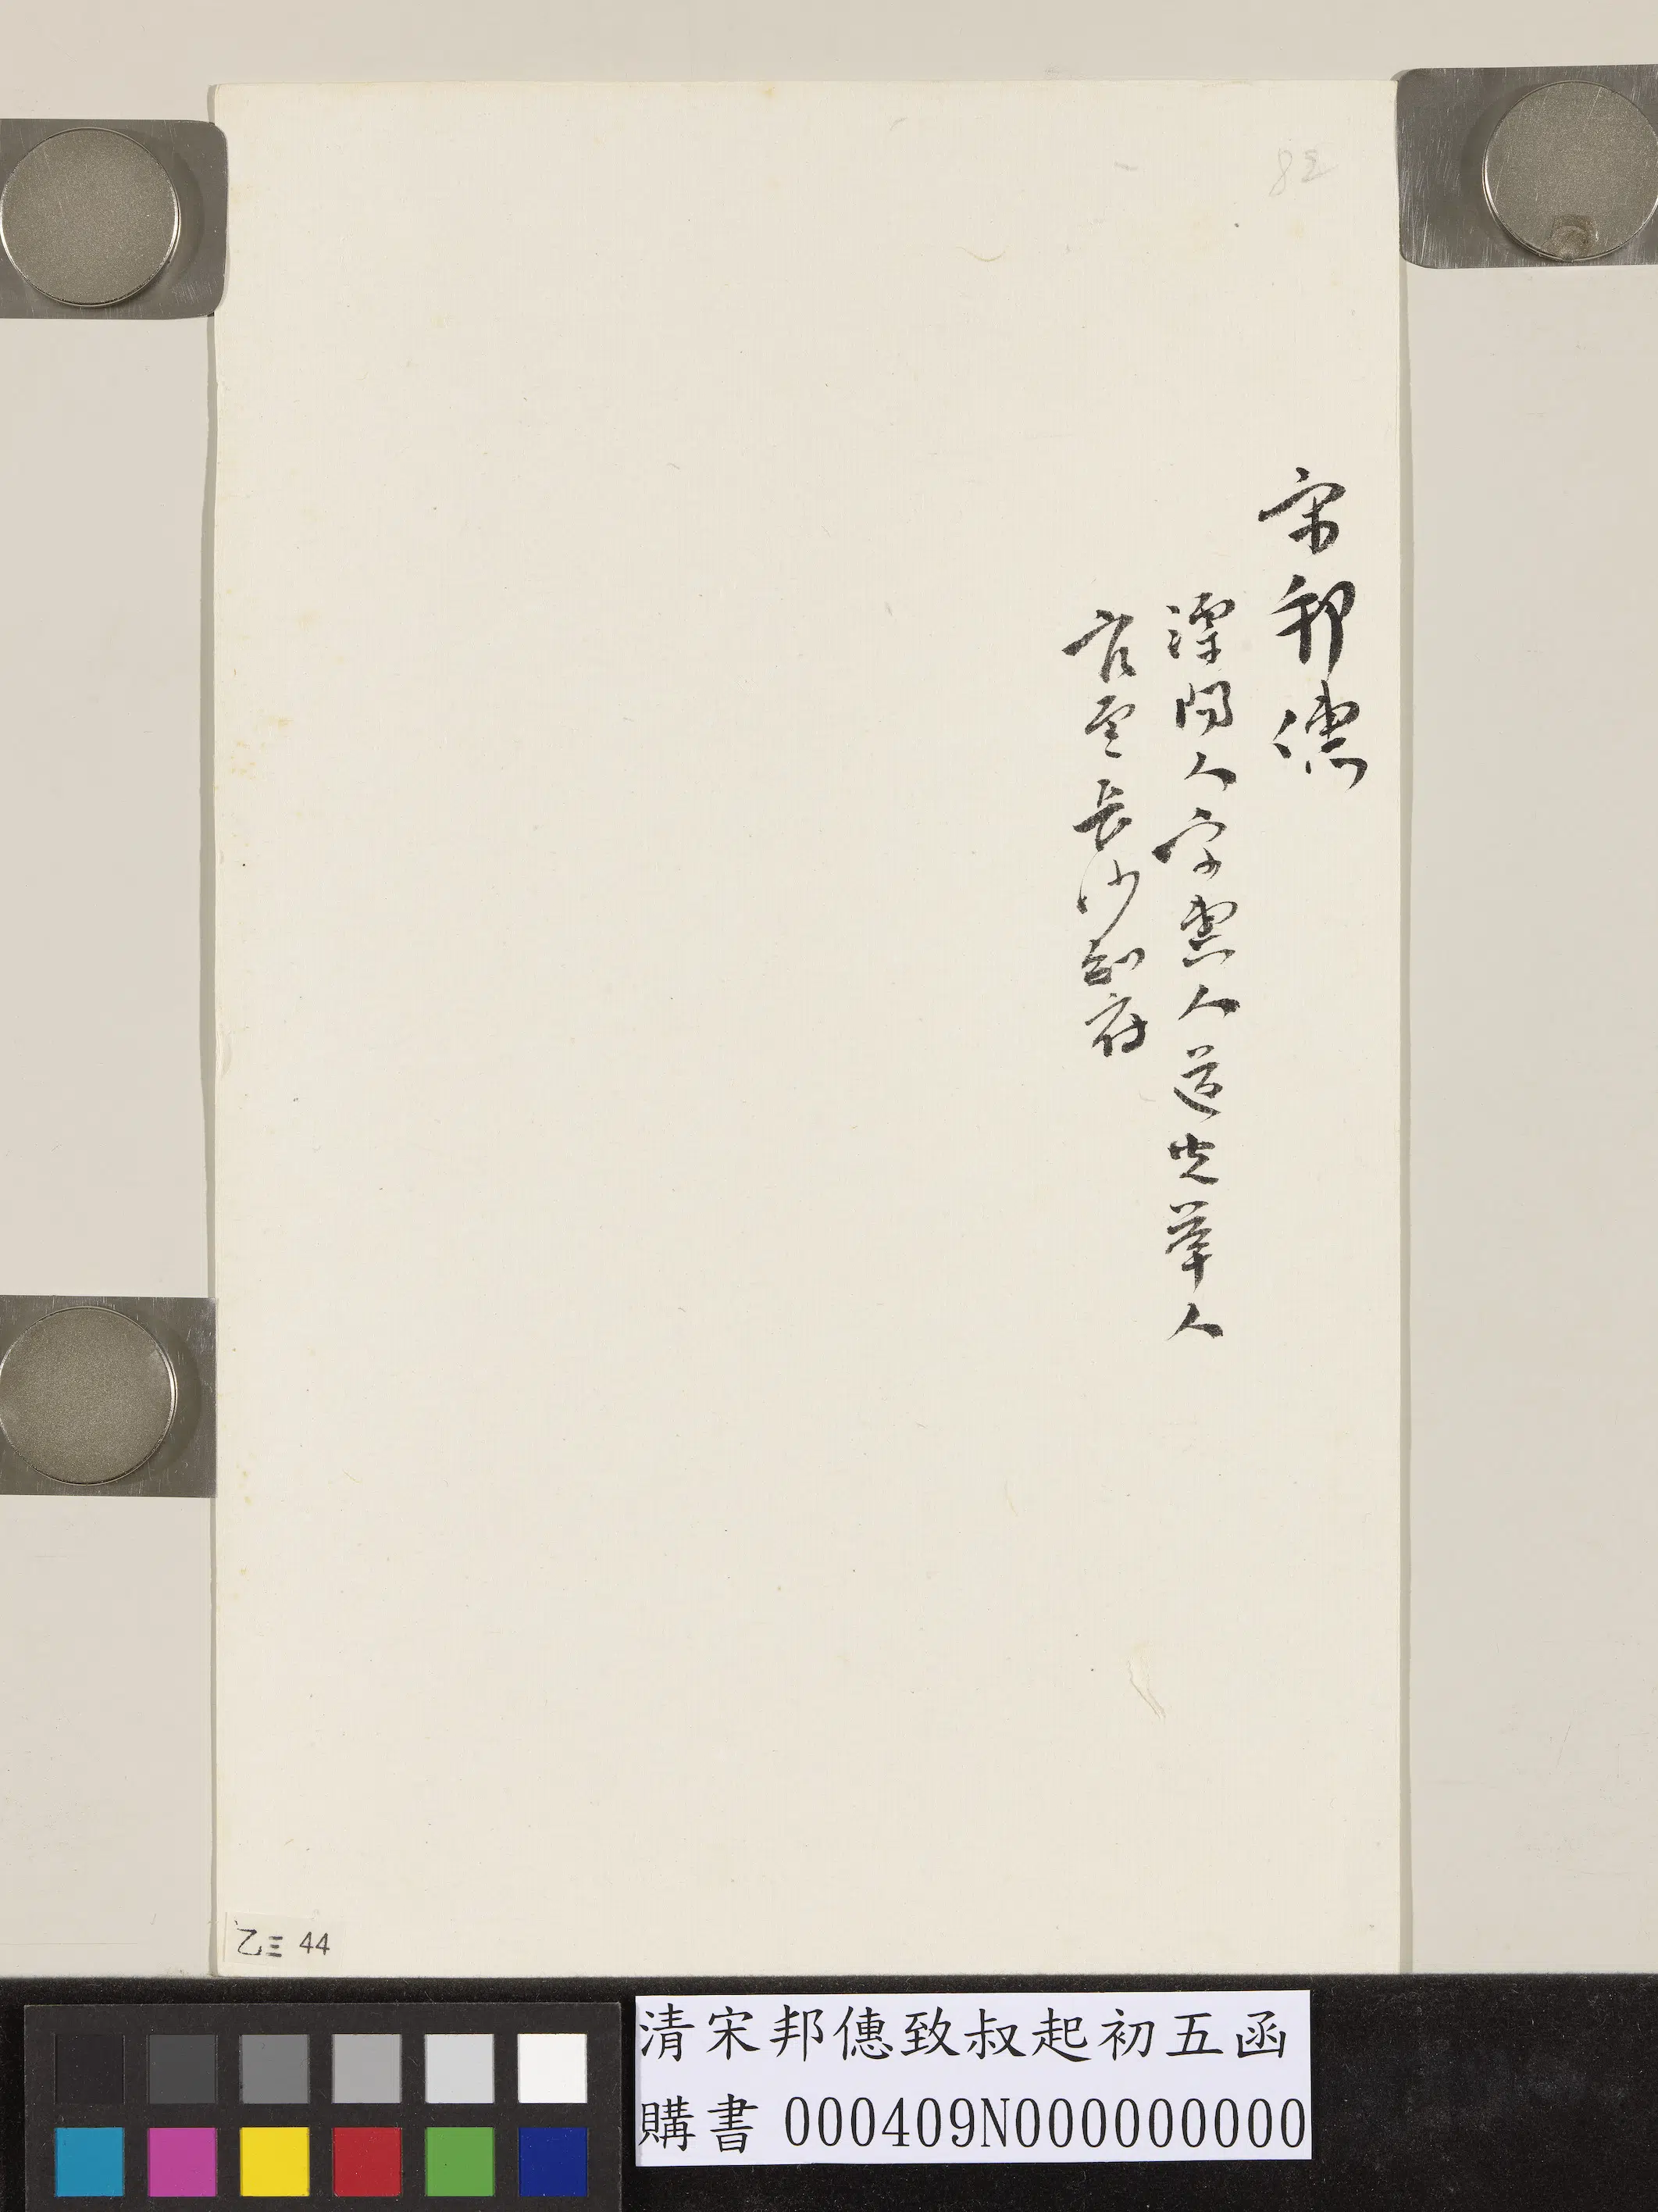 宋邦僡
溧陽人字惠人道光舉人
官至長沙知府
乙三 44
清宋邦僡致叔起初五函
購書 000409N000000000